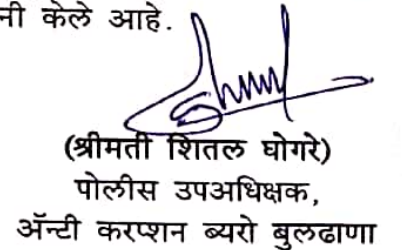 नी केले आहे.
(श्रीमती शितल घोगरे)
पोलीस उपअधिक्षक,
ॲन्टी करप्शन ब्यरो बुलढाणा